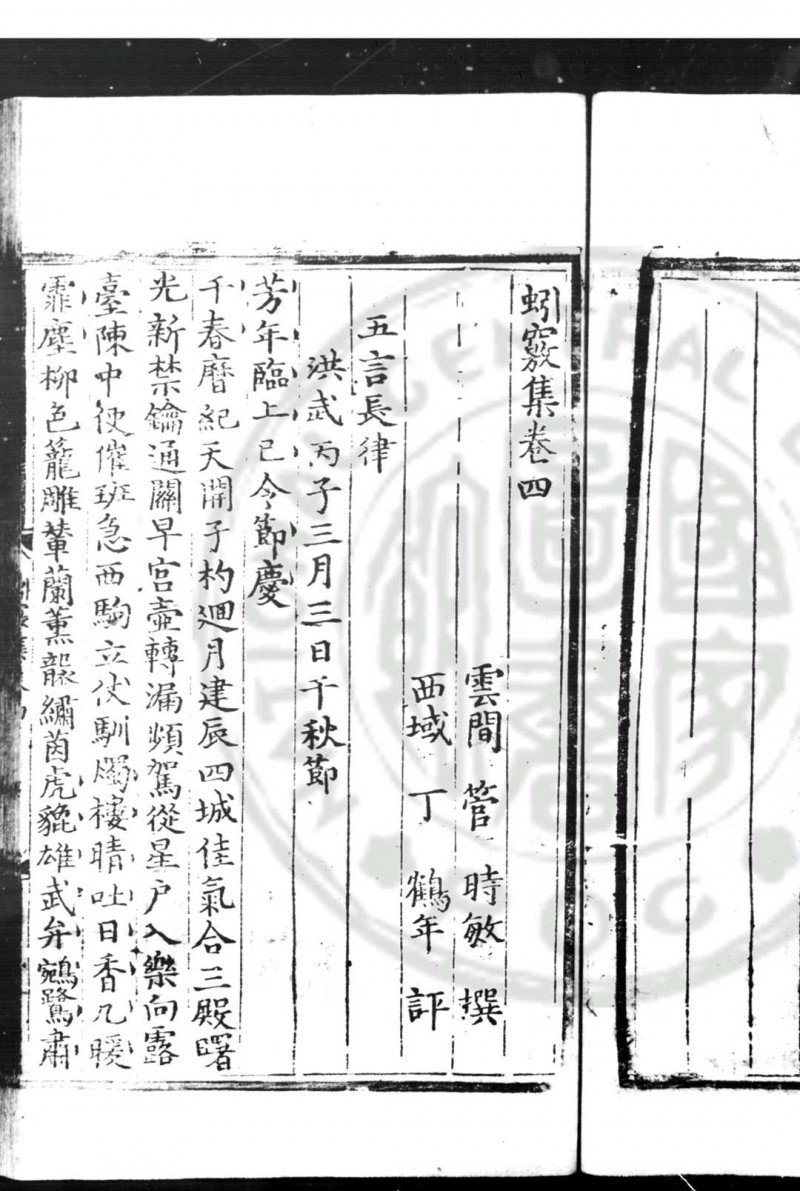 蚓竅集卷四
雲間 管 時敏 撰
西域 丁 鶴年 評
五言長律
洪武丙子三月三日千秋節
芳年臨上巳令節慶
千春曆紀天開子杓迴月建辰四城佳氣合三殿曙
光新禁鑰通關早宮壺轉漏頻駕從星户入樂向露
臺陳中使催班急西駒立仗馴燭樓晴吐日香几暖
霏塵柳色籠雕輦蘭薰襲繡茵虎貔雄武弁鵷鷺肅